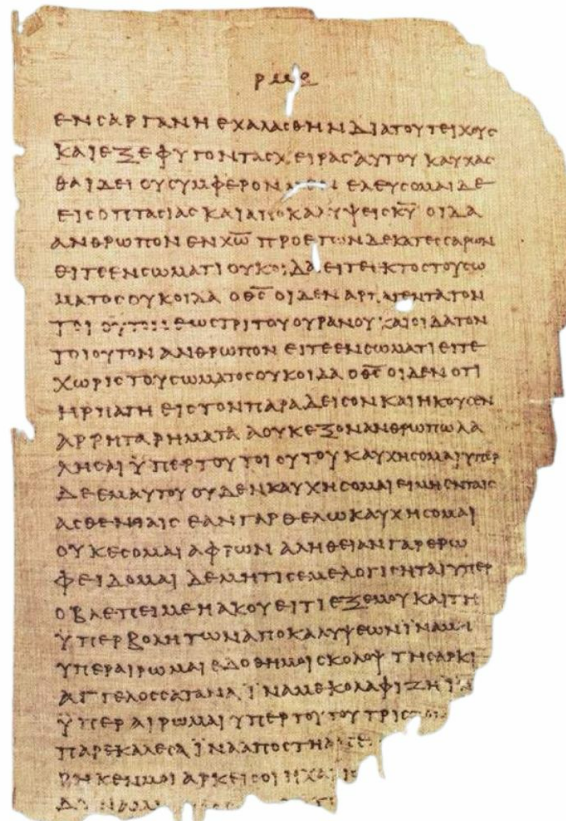 ΡΜΕ
ΕΝ ΣΑΡΓΑΝΗ ΕΧΑΛΑΣΘΗΝ ΔΙΑ ΤΟΥ ΤΕΙΧΟΥΣ
ΚΑΙ ΕΞΕΦΥΓΟΝ ΤΑΣ ΧΕΙΡΑΣ ΑΥΤΟΥ ΚΑΥΧΑΣ
ΘΑΙ ΔΕΙ ΟΥ ΣΥΜΦΕΡΟΝ ΕΛΕΥΣΟΜΑΙ ΔΕ
ΕΙΣ ΟΠΤΑΣΙΑΣ ΚΑΙ ΑΠΟΚΑΛΥΨΕΙΣ Κ̅Υ̅ ΟΙΔΑ
ΑΝΘΡΩΠΟΝ ΕΝ Χ̅Ω̅ ΠΡΟ ΕΤΩΝ ΔΕΚΑΤΕΣΣΑΡΩΝ
ΕΙΤΕ ΕΝ ΣΩΜΑΤΙ ΟΥΚ ΟΙΔΑ ΕΙΤΕ ΕΚΤΟΣ ΤΟΥ ΣΩ
ΜΑΤΟΣ ΟΥΚ ΟΙΔΑ Ο Θ̅Σ̅ ΟΙΔΕΝ ΑΡΠΑΓΕΝΤΑ ΤΟΝ
ΤΟΙΟΥΤΟΝ ΕΩΣ ΤΡΙΤΟΥ ΟΥΡΑΝΟΥ ΚΑΙ ΟΙΔΑ ΤΟΝ
ΤΟΙΟΥΤΟΝ ΑΝΘΡΩΠΟΝ ΕΙΤΕ ΕΝ ΣΩΜΑΤΙ ΕΙΤΕ
ΧΩΡΙΣ ΤΟΥ ΣΩΜΑΤΟΣ ΟΥΚ ΟΙΔΑ Ο Θ̅Σ̅ ΟΙΔΕΝ ΟΤΙ
ΗΡΠΑΓΗ ΕΙΣ ΤΟΝ ΠΑΡΑΔΕΙΣΟΝ ΚΑΙ ΗΚΟΥΣΕΝ
ΑΡΡΗΤΑ ΡΗΜΑΤΑ Α ΟΥΚ ΕΞΟΝ ΑΝΘΡΩΠΩ ΛΑ
ΛΗΣΑΙ ΫΠΕΡ ΤΟΥ ΤΟΙΟΥΤΟΥ ΚΑΥΧΗΣΟΜΑΙ ΥΠΕΡ
ΔΕ ΕΜΑΥΤΟΥ ΟΥΔΕΝ ΚΑΥΧΗΣΟΜΑΙ ΕΙ ΜΗ ΕΝ ΤΑΙΣ
ΑΣΘΕΝΕΙΑΙΣ ΕΑΝ ΓΑΡ ΘΕΛΩ ΚΑΥΧΗΣΟΜΑΙ
ΟΥΚ ΕΣΟΜΑΙ ΑΦΡΩΝ ΑΛΗΘΕΙΑΝ ΓΑΡ ΕΡΩ
ΦΕΙΔΟΜΑΙ ΔΕ ΜΗ ΤΙΣ ΕΜΕ ΛΟΓΙΣΗΤΑΙ ΥΠΕΡ
Ο ΒΛΕΠΕΙ ΜΕ Η ΑΚΟΥΕΙ ΤΙ ΕΞ ΕΜΟΥ ΚΑΙ ΤΗ
ΫΠΕΡΒΟΛΗ ΤΩΝ ΑΠΟΚΑΛΥΨΕΩΝ ΪΝΑ ΜΗ
ΥΠΕΡΑΙΡΩΜΑΙ ΕΔΟΘΗ ΜΟΙ ΣΚΟΛΟΨ ΤΗ ΣΑΡΚΙ
ΑΓΓΕΛΟΣ ΣΑΤΑΝΑ ΪΝΑ ΜΕ ΚΟΛΑΦΙΖΗ ΪΝ
ΫΠΕΡΑΙΡΩΜΑΙ ΥΠΕΡ ΤΟΥΤΟΥ ΤΡΙΣ
ΠΑΡΕΚΑΛΕΣΑ ΪΝΑ ΑΠΟΣΤΗ
ΡΗΚΕΝ ΜΟΙ ΑΡΚΕΙ ΣΟΙ Η ΧΑΡΙΣ